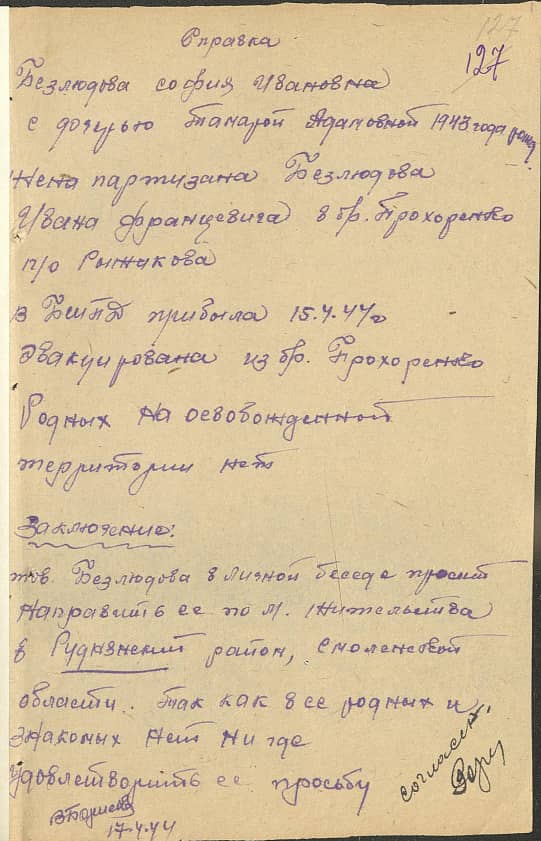 127
127
Справка
Безлюдова София Ивановна
с дочерью Тамарой Адамовной 1943 года рожд.
Жена партизана Безлюдова
Ивана Францевича в бр. Прохоренко
п/о Рыжакова
В БШПД прибыла 15.4.44 г
Эвакуирована из бр. Прохоренко
Родных на освобожденной
территории нет
Заключение:
тов. Безлюдова в личной беседе просит
направить ее по м. жительства
в Руднянский район, Смоленской
области. Так как в ее родных и
знакомых нет ни где
Удовлетворить ее просьбу
согласен.
17.4.44